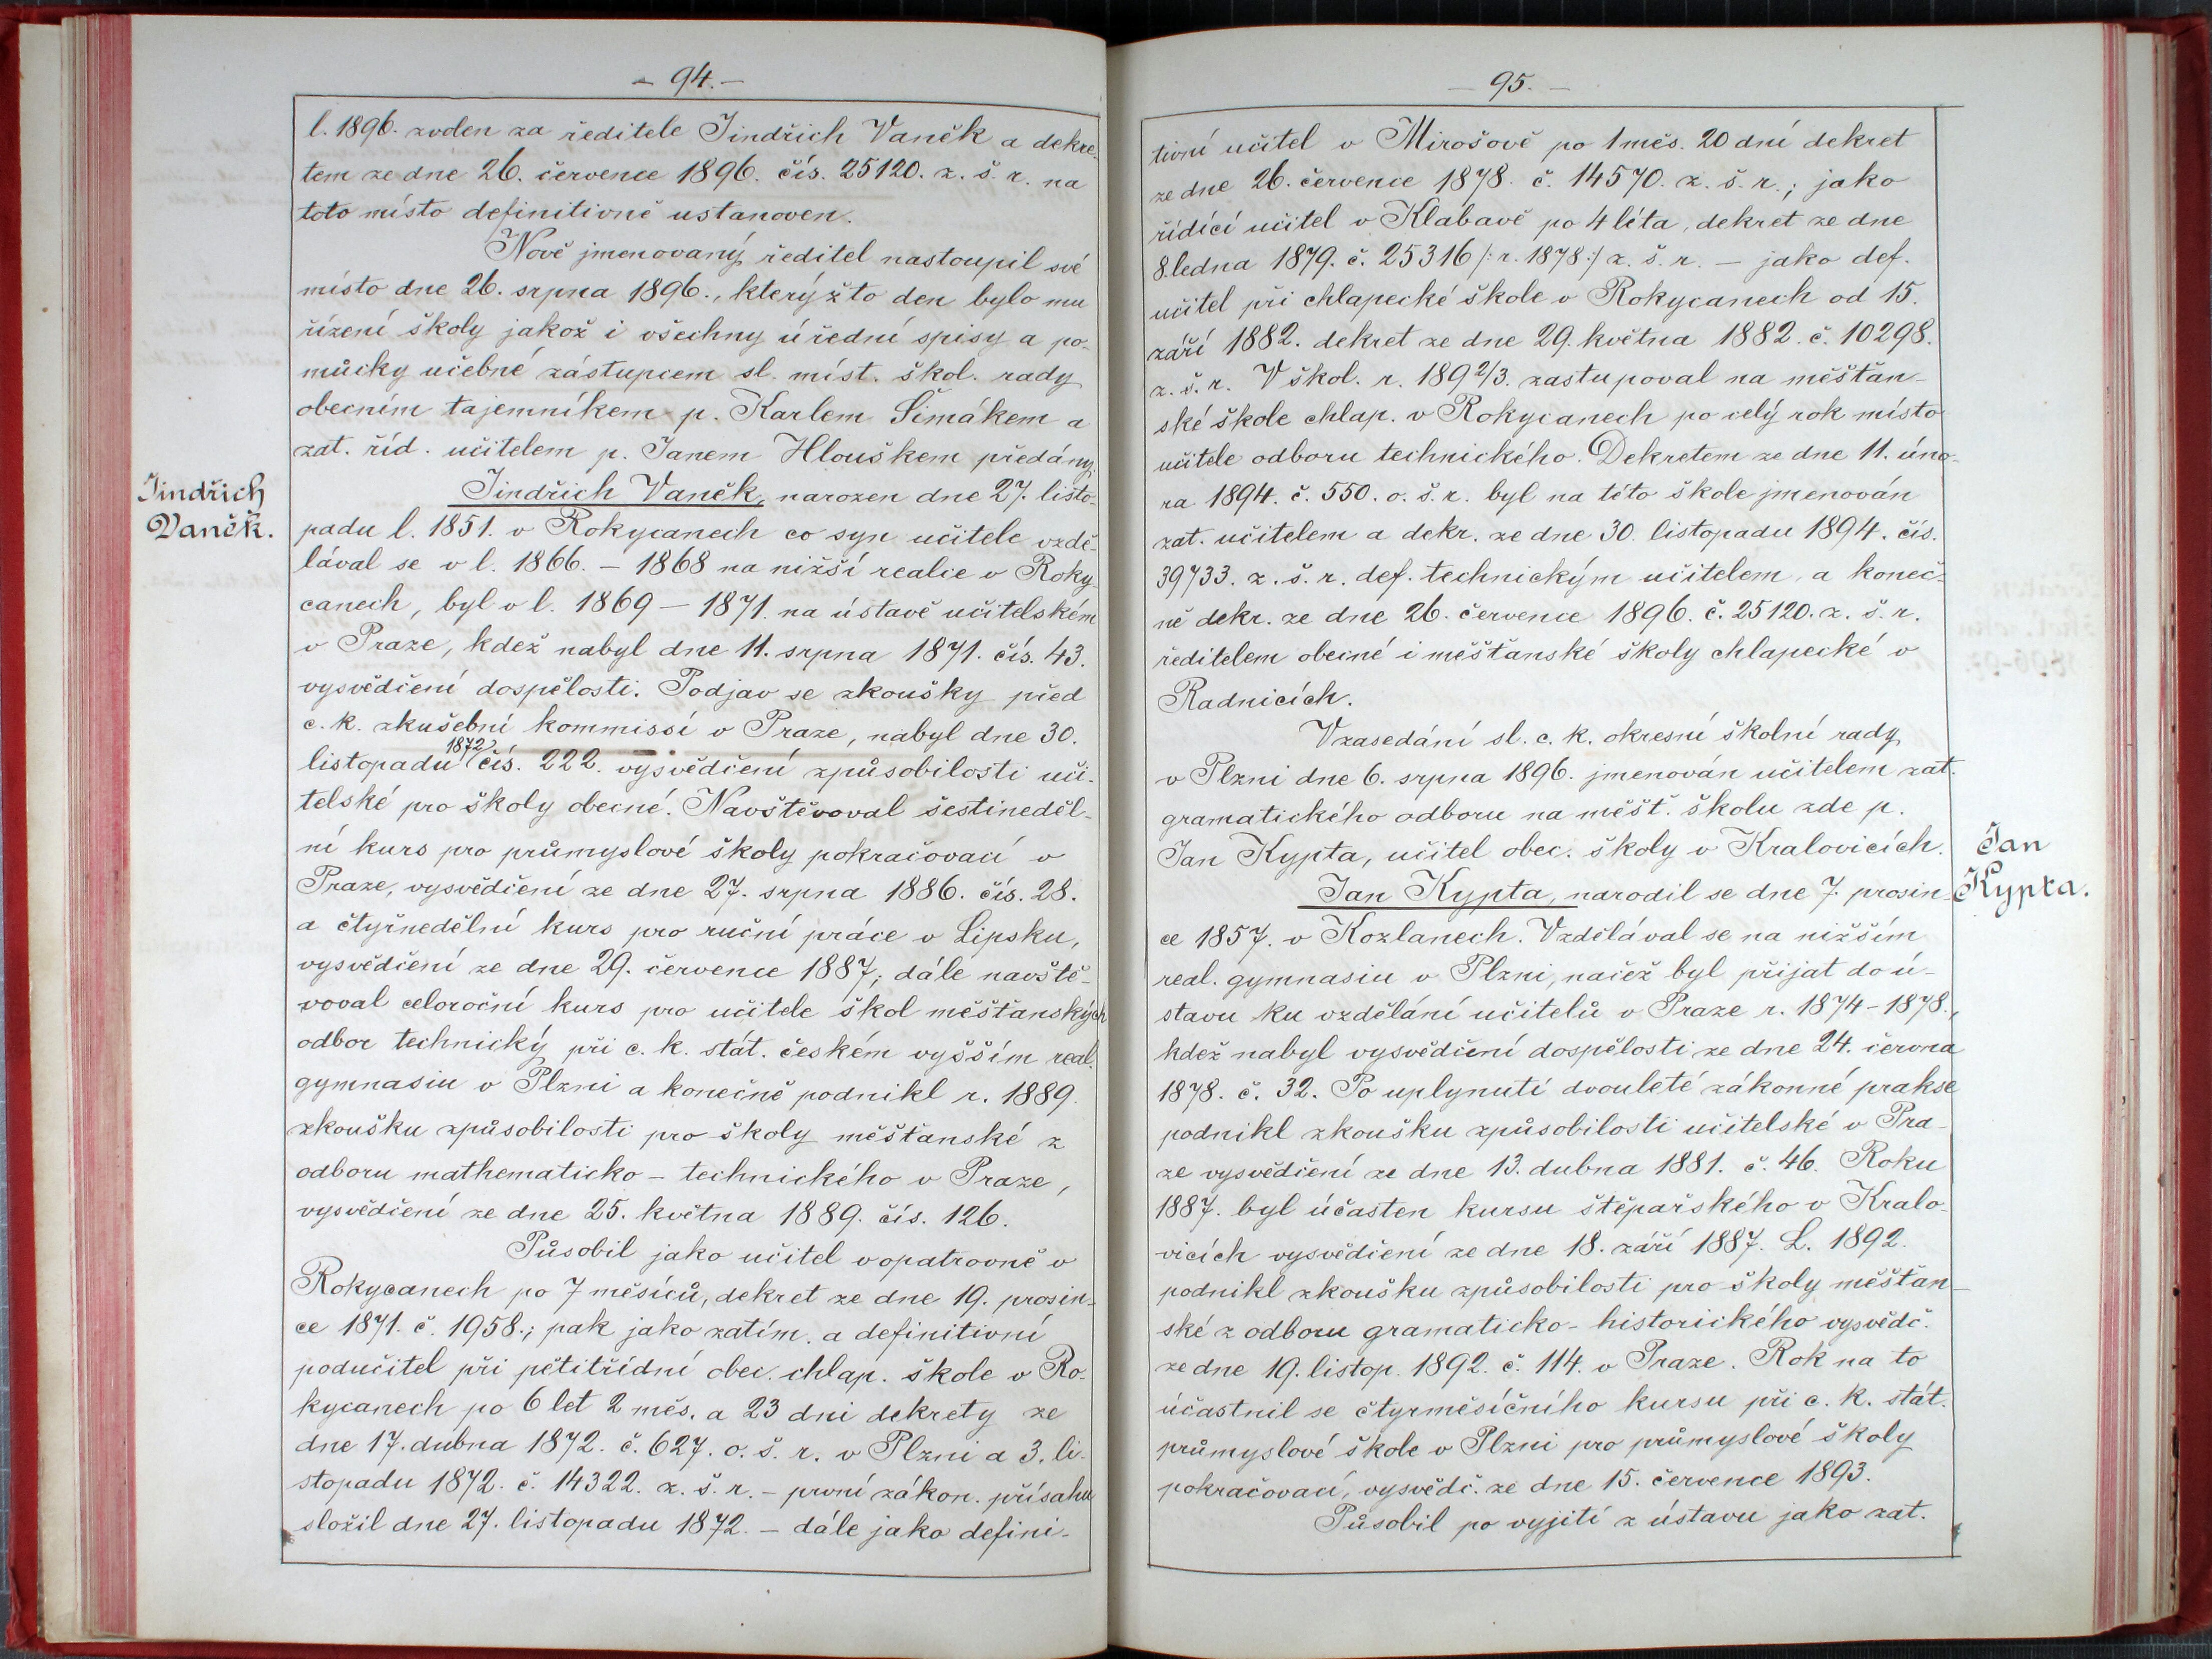 – 94. –
l. 1896. zvolen za ředitele Jindřich Vaněk a dekre-
tem ze dne 26. července 1896. čís. 25120. z. š. r. na
toto místo definitivně ustanoven.
Nově jmenovaný ředitel nastoupil své
místo dne 26. srpna 1896., kterýžto den bylo mu
řízení školy jakož i všechny úřední spisy a po-
můcky učebné zástupcem sl. míst. škol. rady
obecním tajemníkem p. Karlem Šimákem a
zat. říd. učitelem p. Janem Hlouškem předány.
Jindřich
Vaněk.
Jindřich Vaněk, narozen dne 27. listo-
padu l. 1851. v Rokycanech co syn učitele vzdě-
lával se v l. 1866. – 1868 na nižší realce v Roky
canech, byl v l. 1869 – 1871. na ústavě učitelském
v Praze, kdež nabyl dne 11. srpna 1871. čís. 43.
vysvědčení dospělosti. Podjav se zkoušky před
c. k. zkušební kommissí v Praze, nabyl dne 30.
listopadu 1872 čís. 222. vysvědčení způsobilosti uči-
telské pro školy obecné. Navštěvoval šestineděl-
ní kurs pro průmyslové školy pokračovací v
Praze, vysvědčení ze dne 27. srpna 1886. čís. 28.
a čtyřnedělní kurs pro ruční práce v Lipsku,
vysvědčení ze dne 29. července 1887; dále navště-
voval celoroční kurs pro učitele škol měšťanských
odbor technický při c. k. stát. českém vyšším real.
gymnasiu v Plzni a konečně podnikl r. 1889.
zkoušku způsobilosti pro školy měšťanské z
odboru mathematicko – technického v Praze,
vysvědčení ze dne 25. května 1889. čís. 126.
Působil jako učitel v opatrovně v
Rokycanech po 7 měsíců, dekret ze dne 19. prosin-
ce 1871. č. 1958.; pak jako zatím. a definitivní
podučitel při pětitřídní obec. chlap. škole v Ro-
kycanech po 6 let 2 měs. a 23 dni dekrety ze
dne 17. dubna 1872. č. 627. o. š. r. v Plzni a 3. li-
stopadu 1872. č. 14322. z. š. r. – první zákon. přísahu
složil dne 27. listopadu 1872. – dále jako defini-
– 95. –
tivní učitel v Mirošově po 1 měs. 20 dní dekret
ze dne 26. července 1878. č. 14570. z. š. r.; jako
řídící učitel v Klabavě po 4 léta, dekret ze dne
8. ledna 1879. č. 25316 /: r. 1878 :/ z. š. r. – jako def.
učitel při chlapecké škole v Rokycanech od 15.
září 1882. dekret ze dne 29. května 1882. č. 10298.
z. š. r. V škol. r. 1892/3. zastupoval na měšťan-
ské škole chlap. v Rokycanech po celý rok místo
učitele odboru technického. Dekretem ze dne 11. úno-
ra 1894. č. 550. o. š. r. byl na této škole jmenován
zat. učitelem a dekr. ze dne 30. listopadu 1894. čís.
39733. z. š. r. def. technickým učitelem, a koneč-
ně dekr. ze dne 26. července 1896. č. 25120. z. š. r.
ředitelem obecné i měšťanské školy chlapecké v
Radnicích.
V zasedání sl. c. k. okresní školní rady
v Plzni dne 6. srpna 1896. jmenován učitelem zat.
gramatického odboru na měšť. školu zde p.
Jan Kypta, učitel obec. školy v Kralovicích.
Jan
Kypta.
Jan Kypta, narodil se dne 7. prosin-
ce 1857. v Kozlanech. Vzdělával se na nižším
real. gymnasiu v Plzni, načež byl přijat do ú-
stavu ku vzdělání učitelů v Praze r. 1874 – 1878.,
kdež nabyl vysvědčení dospělosti ze dne 24. června
1878. č. 32. Po uplynutí dvouleté zákonné prakse
podnikl zkoušku způsobilosti učitelské v Pra-
ze vysvědčení ze dne 13. dubna 1881. č. 46. Roku
1887. byl účasten kursu štěpařského v Kralo-
vicích vysvědčení ze dne 18. září 1887. L. 1892.
podnikl zkoušku způsobilosti pro školy měšťan-
ské z odboru gramaticko – historického vysvědč.
ze dne 19. listop. 1892. č. 114. v Praze. Rok na to
účastnil se čtyrměsíčního kursu při c. k. stát.
průmyslové škole v Plzni pro průmyslové školy
pokračovací, vysvědč. ze dne 15. července 1893.
Působil po vyjití z ústavu jako zat.